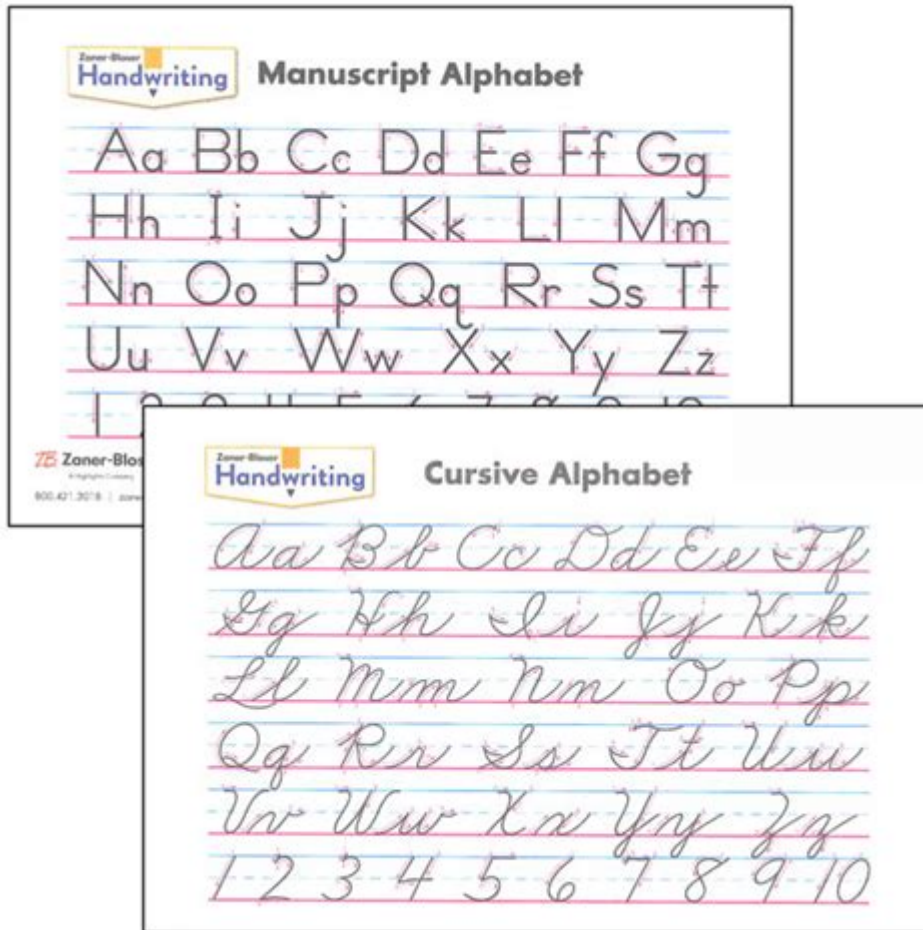 Zaner-Bloser
Handwriting
Manuscript Alphabet
Aa Bb Cc Dd Ee Ff Gg
Hh Ii Jj Kk Ll Mm
Nn Oo Pp Qq Rr Ss Tt
Uu Vv Ww Xx Yy Zz
1 2 3 4 5 6 7 8 9 10
ZB Zaner-Blos
A Highlights Company
800.421.3018 | zane
Zaner-Bloser
Handwriting
Cursive Alphabet
Aa Bb Cc Dd Ee Ff
Gg Hh Ii Jj Kk
Ll Mm Nn Oo Pp
Qq Rr Ss Tt Uu
Vv Ww Xx Yy Zz
1 2 3 4 5 6 7 8 9 10